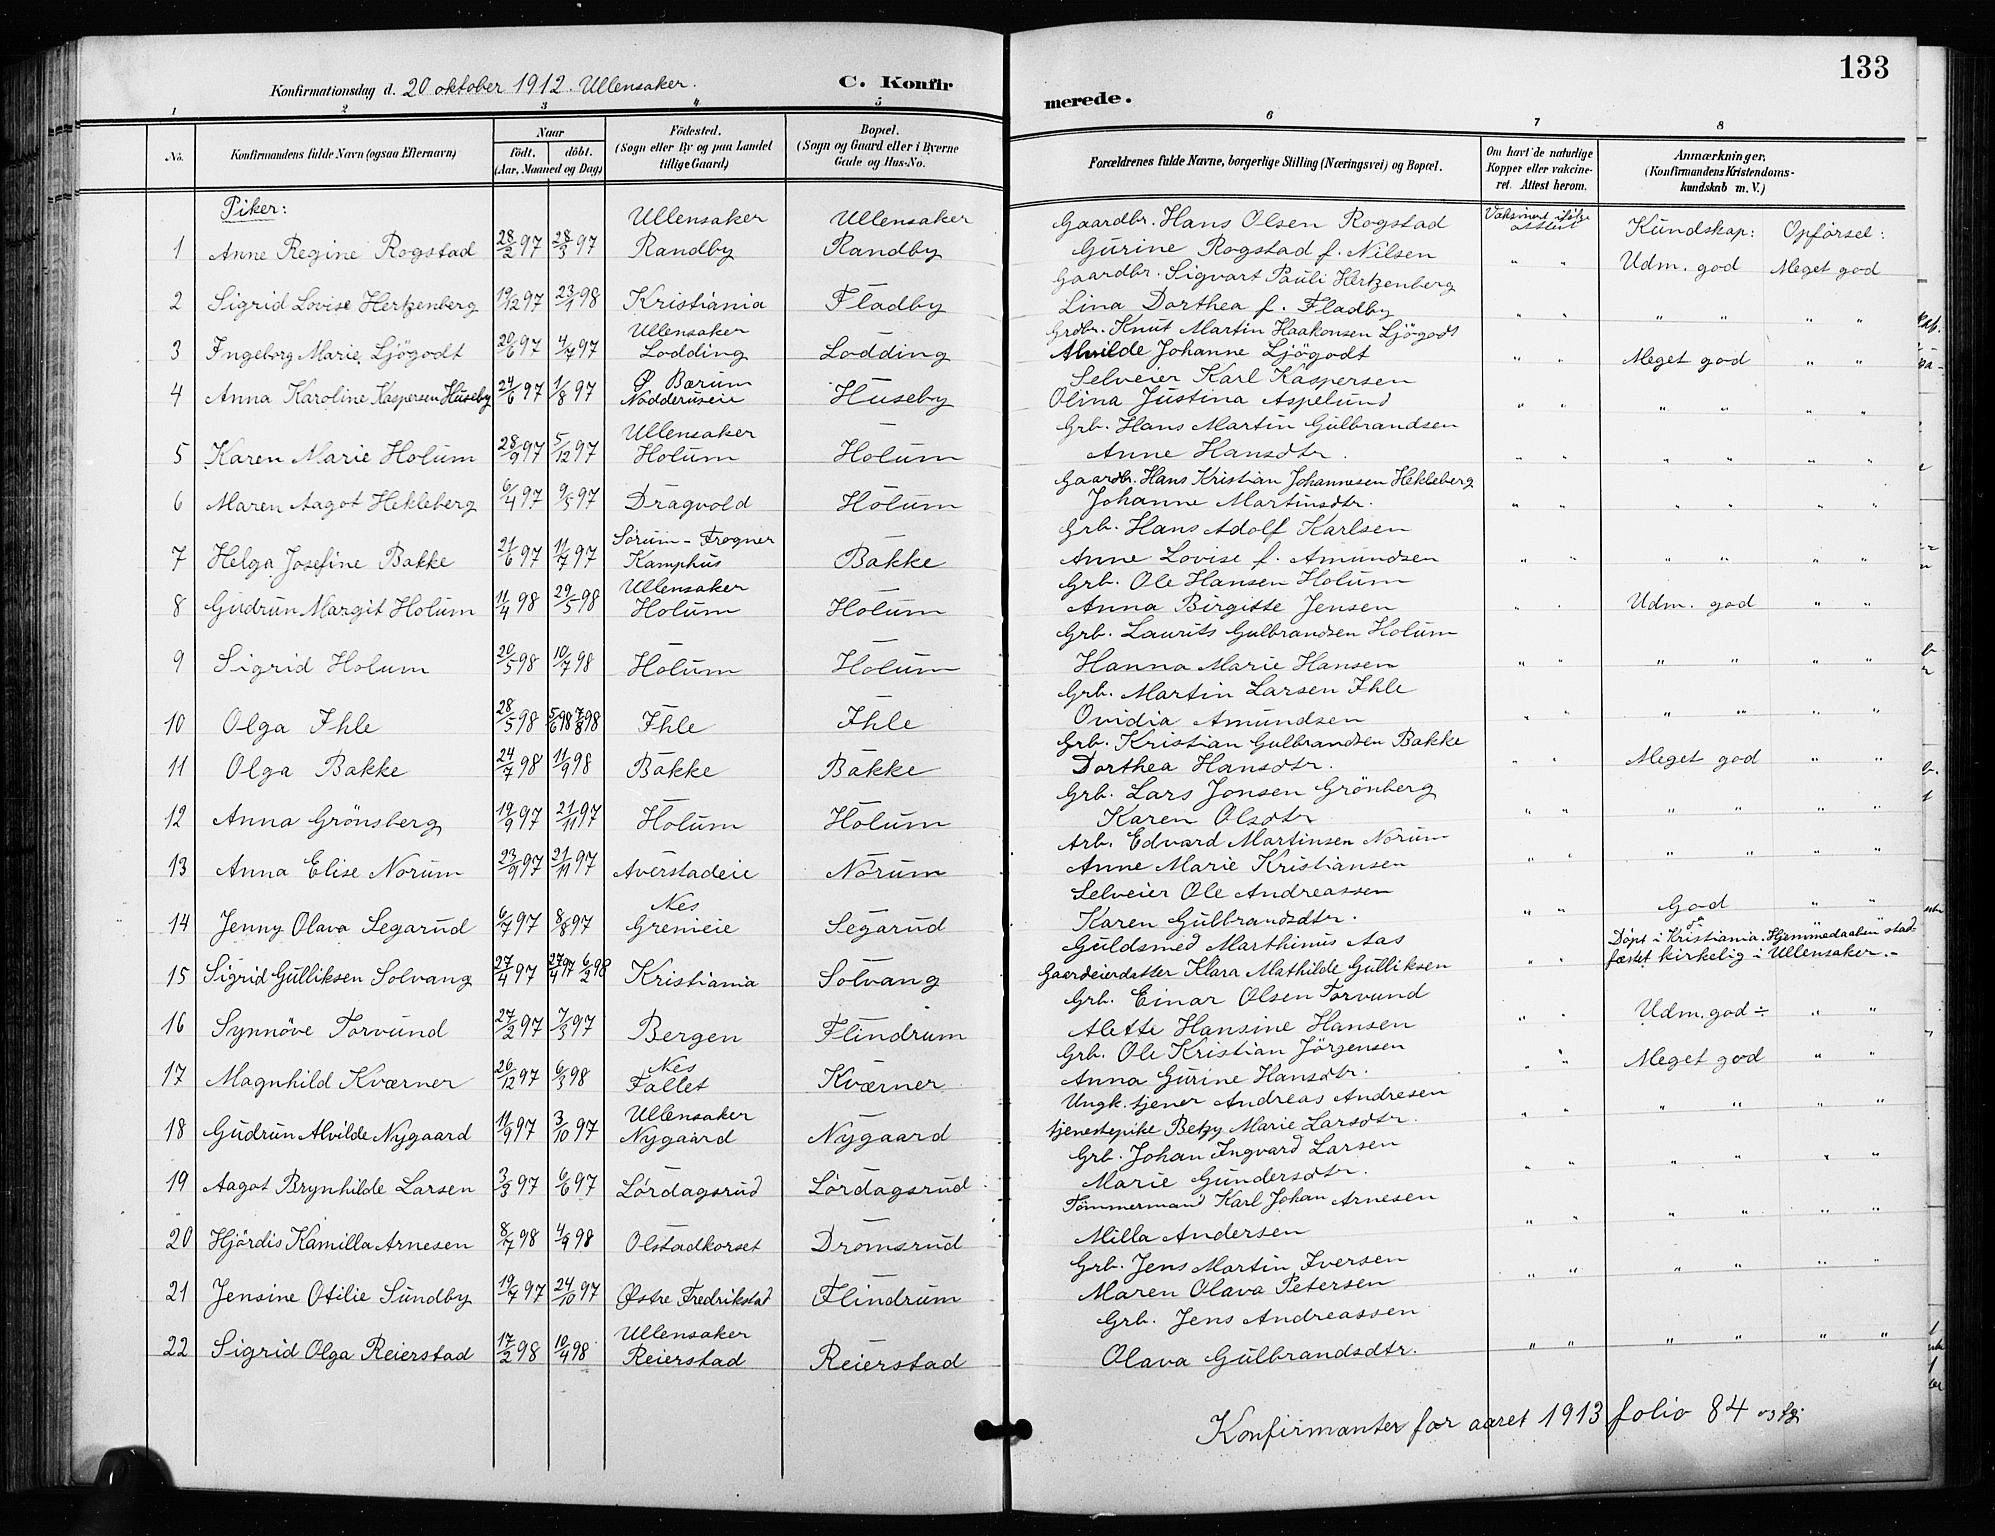 133
Konfirmationsdag d. 20 oktober 1912. Ullensaker. C. Konfir
merede.
1 2 3 4 5 6 7 8
No. Konfirmandens fulde Navn (ogsaa Efternavn) Naar født. døbt. (Aar, Maaned og Dag) Fødested. (Sogn eller By og paa Landet tillige Gaard) Bopæl. (Sogn og Gaard eller i Byerne Gade og Hus-No. Forældrenes fulde Navne, borgerlige Stilling (Næringsvei) og Bopæl. Om havt de naturlige Kopper eller vakcineret. Attest herom. Anmærkninger. (Konfirmandens Kristendomskundskab m. V.)
Piker: Ullensaker Ullensaker Gaardbr. Hans Olsen Rogstad Vaksinert ifølge attest Kundskap: Opførsel:
1 Anne Regine Rogstad 28/2 97 28/3 97 Randby Randby Gurine Rogstad f. Nilsen " " Udm. god Meget god
Gaardbr. Sigvart Pauli Hertzenberg
2 Sigrid Lovise Hertzenberg 19/12 97 23/1 98 Kristiania Fladby Lina Dorthea f. Fladby " " " " " "
Ullensaker Grdbr. Knut Martin Haakonsen Ljögodt
3 Ingeborg Marie Ljögodt 20/6 97 4/7 97 Lodding Lodding Alvilde Johanne Ljögodt " " Meget god " "
Ø. Bærum Selveier Karl Kaspersen
4 Anna Karoline Kaspersen Huseby 24/6 97 1/8 97 Nadderuseie Huseby Olina Justina Aspelund " " " " " "
Ullensaker Grb. Hans Martin Gulbrandsen
5 Karen Marie Holum 28/9 97 5/12 97 Holum Holum Anne Hansdtr. " " " " " "
Gaardbr. Hans Kristian Johannesen Hekleberg
6 Maren Aagot Hekleberg 6/4 97 9/5 97 Dragvold Holum Johanne Martinsdtr. " " " " " "
Sørum - Frogner Grb. Hans Adolf Karlsen
7 Helga Josefine Bakke 21/6 97 11/7 97 Kamphus Bakke Anne Lovise f. Amundsen " " " " " "
Ullensaker Grb. Ole Hansen Holum
8 Gudrun Margit Holum 11/4 98 29/5 98 Holum Holum Anna Birgitte Jensen " " Udm. god " "
Grb. Laurits Gulbrandsen Holum
9 Sigrid Holum 20/5 98 10/7 98 Holum Holum Hanna Marie Hansen " " " " " "
Grb. Martin Larsen Ihle
10 Olga Ihle 28/5 98 5/6 98 7/8 98 Ihle Ihle Ovidia Amundsen " " " " " "
Grb. Kristian Gulbrandsen Bakke
11 Olga Bakke 24/7 98 11/9 98 Bakke Bakke Dorthea Hansdtr. " " Meget god " "
Grb. Lars Jonsen Grönberg
12 Anna Grönsberg 19/9 97 21/11 97 Holum Holum Karen Olsdtr " " " " " "
Arb. Edvard Martinsen Norum
13 Anna Elise Norum 23/9 97 21/11 97 Averstadeie Norum Anne Marie Kristiansen " " " " " "
Nes Selveier Ole Andreassen
14 Jenny Olava Segarud 6/7 97 8/8 97 Grenieie Segarud Karen Gulbrandsdtr. " " God " "
Guldsmed Marthinus Aas Døpt i Kristiania. Hjemmedaaben stad-
15 Sigrid Gulliksen Solvang 27/4 97 27/4 97 6/2 98 Kristiania Solvang Gaardeierdatter Klara Mathilde Gulliksen " " fæstet kirkelig i Ullensaker.-
Grb. Einar Olsen Torvund
16 Synnöve Torvund 27/2 97 7/3 97 Bergen Flindrum Alette Hansine Hansen " " Udm. god ÷ " "
Nes Grb. Ole Kristian Jörgensen
17 Magnhild Kværner 26/12 97 6/3 98 Fallet Kværner Anna Gurine Hansdtr. " " Meget god " "
Ullensaker Ungk. tjener Andreas Andresen
18 Gudrun Alvilde Nygaard 11/9 97 3/10 97 Nygaard Nygaard tjenestepike Betzy Marie Larsdtr. " " " " " "
Grb. Johan Ingvard Larsen
19 Aagot Brynhilde Larsen 3/3 97 6/6 97 Lördagsrud Lördagsrud Marie Gundersdtr. " " " " " "
Tömmermand Karl Johan Arnesen
20 Hjördis Kamilla Arnesen 8/7 98 4/9 98 Olstadkorset Dromsrud Milla Andersen " " " " " "
Grb. Jens Martin Iversen
21 Jensine Otilie Sundby 19/7 97 24/10 97 Østre Fredrikstad Flindrum Maren Olava Petersen " " " " " "
Ullensaker Grb. Jens Andreassen
22 Sigrid Olga Reierstad 17/2 98 10/4 98 Reierstad Reierstad Olava Gulbrandsdtr. " " " " " "
Konfirmanter for aaret 1913 folio 84 og fgi